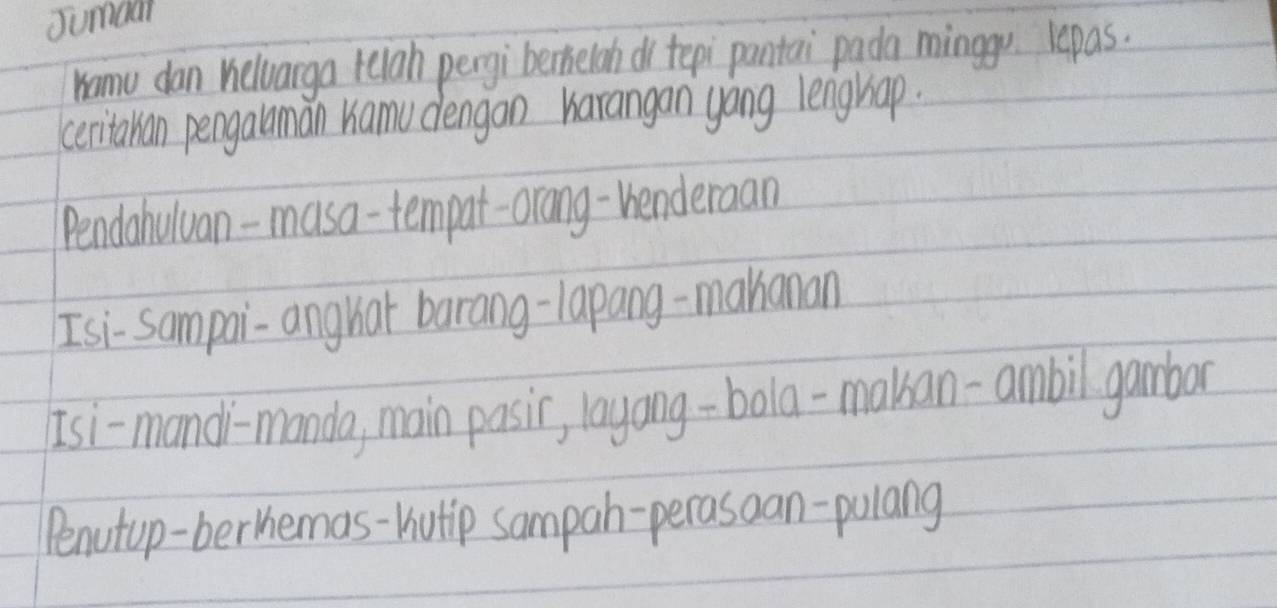 Jumaat
Kamu dan keluarga telah pergi berkelah di tepi pantai pada minggu lepas.
ceritakan pengalaman kamu dengan karangan yang lengkap.
Pendahuluan - masa - tempat - orang - kenderaan
Isi - sampai - angkat barang - lapang - makanan
Isi - mandi - manda, main pasir, layang - bola - makan - ambil gambar
Penutup - berkemas - kutip sampah - perasaan - pulang